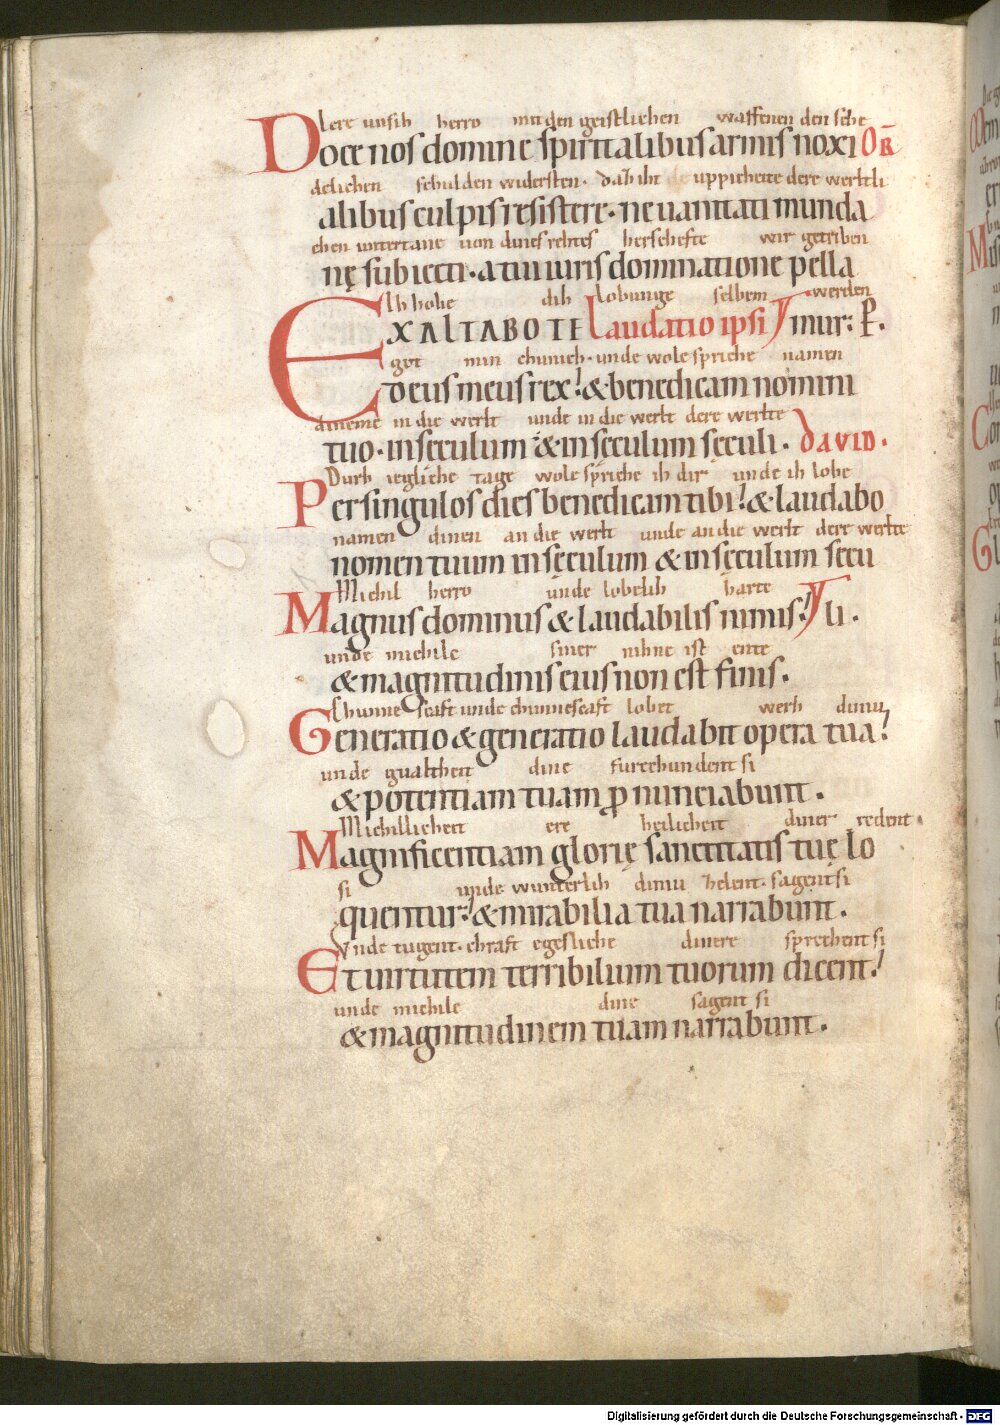 lere unsih herro mit den geistlichen waffenen den sche
Doce nos domine spiritalibus armis noxi OR̅
delichen schulden widersten· daz iht uppicheite dere werltli
alibus culpis resistere· ne vanitati munda
chen untertane von dines rehtes herschefte wir getriben
nę subiecti· a tui iuris dominatione pella
Ih hohe dih lobunge selbem werden
EXALTABO TE Laudatio ipsi mur: P̅.
got min chunich· unde wole spriche namen
deus meus rex! & benedicam nomini
dineme in die werlt unde in die werlt dere werlte
tuo· in sęculum & in sęculum sęculi· DAVID·
Durh iegliche tage wole spriche ih dir unde ih lobe
Per singulos dies benedicam tibi! & laudabo
namen dinen an die werlt unde an die werlt dere werlte
nomen tuum in sęculum & in sęculum sęcu
Michil herro unde lobelih harte
Magnus dominus & laudabilis nimis! li·
unde michile siner nihne ist ente
& magnitudinis eius non est finis·
Chunnescaft unde chunnescaft lobet werh diniu
Generatio & generatio laudabit opera tua!
unde gualtheit dine furtchundent si
& potentiam tuam ꝓnunciabunt·
Michillicheit ere heilicheit diner redent
Magnificentiam glorię sanctitatis tuę lo
si unde wunterlih diniu zelent· sagent si
quentur! & mirabilia tua narrabunt·
Unde tugent· chraft egesliche dinere sprechent si
Et virtutem terribilium tuorum dicent!
unde michile dine sagent si
& magnitudinem tuam narrabunt·
Digitalisierung gefördert durch die Deutsche Forschungsgemeinschaft - DFG